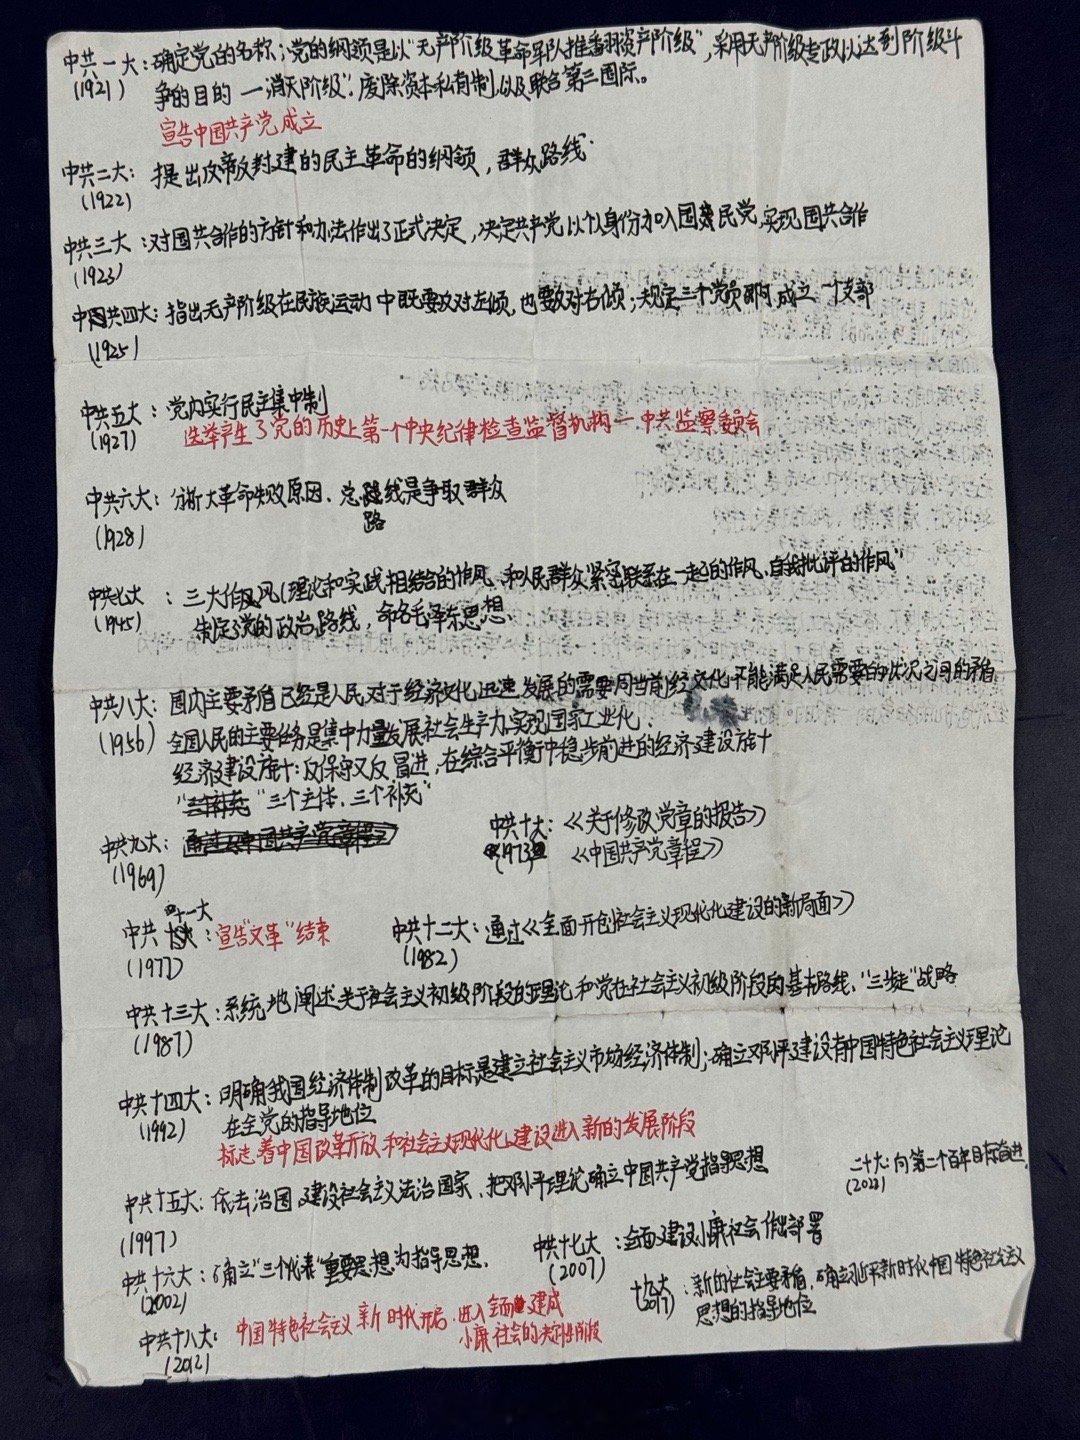 中共一大：确定党的名称；党的纲领是以"无产阶级革命军队推翻资产阶级"，采用无产阶级专政以达到阶级斗
(1921) 争的目的 — 消灭阶级"，废除资本私有制，以及联合第三国际。
宣告中国共产党成立
中共二大：提出反帝反封建的民主革命的纲领，群众路线
(1922)
中共三大：对国共合作的方针和办法作出了正式决定，决定共产党以个人身份加入国民党，实现国共合作
(1923)
中共四大：指出无产阶级在民族运动中既要反对左倾，也要反对右倾；规定三个党员即可成立一个支部
(1925)
中共五大：党内实行民主集中制
(1927) 选举产生了党的历史上第一个中央纪律检查监督机构 — 中共监察委员会
中共六大：分析大革命失败原因，总路线是争取群众
(1928) 路
中共七大：三大作风(理论和实践相结合的作风、和人民群众紧密联系在一起的作风、自我批评的作风"
(1945) 制定了党的政治路线，命名毛泽东思想
中共八大：国内主要矛盾已经是人民对于经济文化迅速发展的需要同当前经济文化不能满足人民需要的状况之间的矛盾
(1956) 全国人民的主要任务是集中力量发展社会生产力，实现国家工业化.
经济建设方针：反保守又反冒进，在综合平衡中稳步前进的经济建设方针
"三个主体、三个补充"
中共九大：
(1969)
中共十大：《关于修改党章的报告》
(1973) 《中国共产党章程》
中共十一大：宣告"文革"结束
(1977)
中共十二大：通过《全面开创社会主义现代化建设的新局面》
(1982)
中共十三大：系统地阐述关于社会主义初级阶段的理论和党在社会主义初级阶段的基本路线，"三步走"战略
(1987)
中共十四大：明确我国经济体制改革的目标是建立社会主义市场经济体制；确立邓小平建设有中国特色社会主义理论
(1992) 在全党的指导地位
标志着中国改革开放和社会主义现代化建设进入新的发展阶段
中共十五大：依法治国，建设社会主义法治国家，把邓小平理论确立中国共产党指导思想
(1997)
二十大：向第二个百年目标奋进
(2022)
中共十六大：确立"三个代表"重要思想为指导思想.
(2002)
中共十七大：全面建设小康社会作出部署
(2007)
十九大：新的社会主要矛盾，确立习近平新时代中国特色社会主义
(2017) 思想的指导地位
中共十八大：中国特色社会主义新时代开启，进入全面建成
(2012) 小康社会的决定性阶段